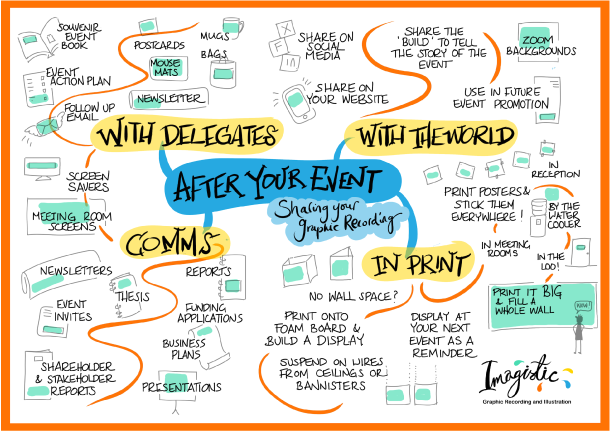 AFTER YOUR EVENT
Sharing your
graphic Recording
WITH DELEGATES
SOUVENIR
EVENT
BOOK
EVENT
ACTION PLAN
FOLLOW UP
EMAIL
POSTCARDS
MUGS
BAGS
MOUSE
MATS
NEWSLETTER
WITH THE WORLD
SHARE ON
SOCIAL
MEDIA
SHARE ON
YOUR WEBSITE
SHARE THE
'BUILD' TO TELL
THE STORY OF THE
EVENT
ZOOM
BACKGROUNDS
USE IN FUTURE
EVENT PROMOTION
COMMS
SCREEN
SAVERS
MEETING ROOM
SCREENS
NEWSLETTERS
EVENT
INVITES
SHAREHOLDER
& STAKEHOLDER
REPORTS
THESIS
REPORTS
FUNDING
APPLICATIONS
BUSINESS
PLANS
PRESENTATIONS
IN PRINT
PRINT POSTERS &
STICK THEM
EVERYWHERE!
IN
RECEPTION
BY THE
WATER
COOLER
IN MEETING
ROOMS
IN THE
LOO!
PRINT IT BIG
& FILL A
WHOLE WALL
WOW!
NO WALL SPACE?
PRINT ONTO
FOAM BOARD &
BUILD A DISPLAY
SUSPEND ON WIRES
FROM CEILINGS OR
BANNISTERS
DISPLAY AT
YOUR NEXT
EVENT AS A
REMINDER
Imagistic
Graphic Recording and Illustration